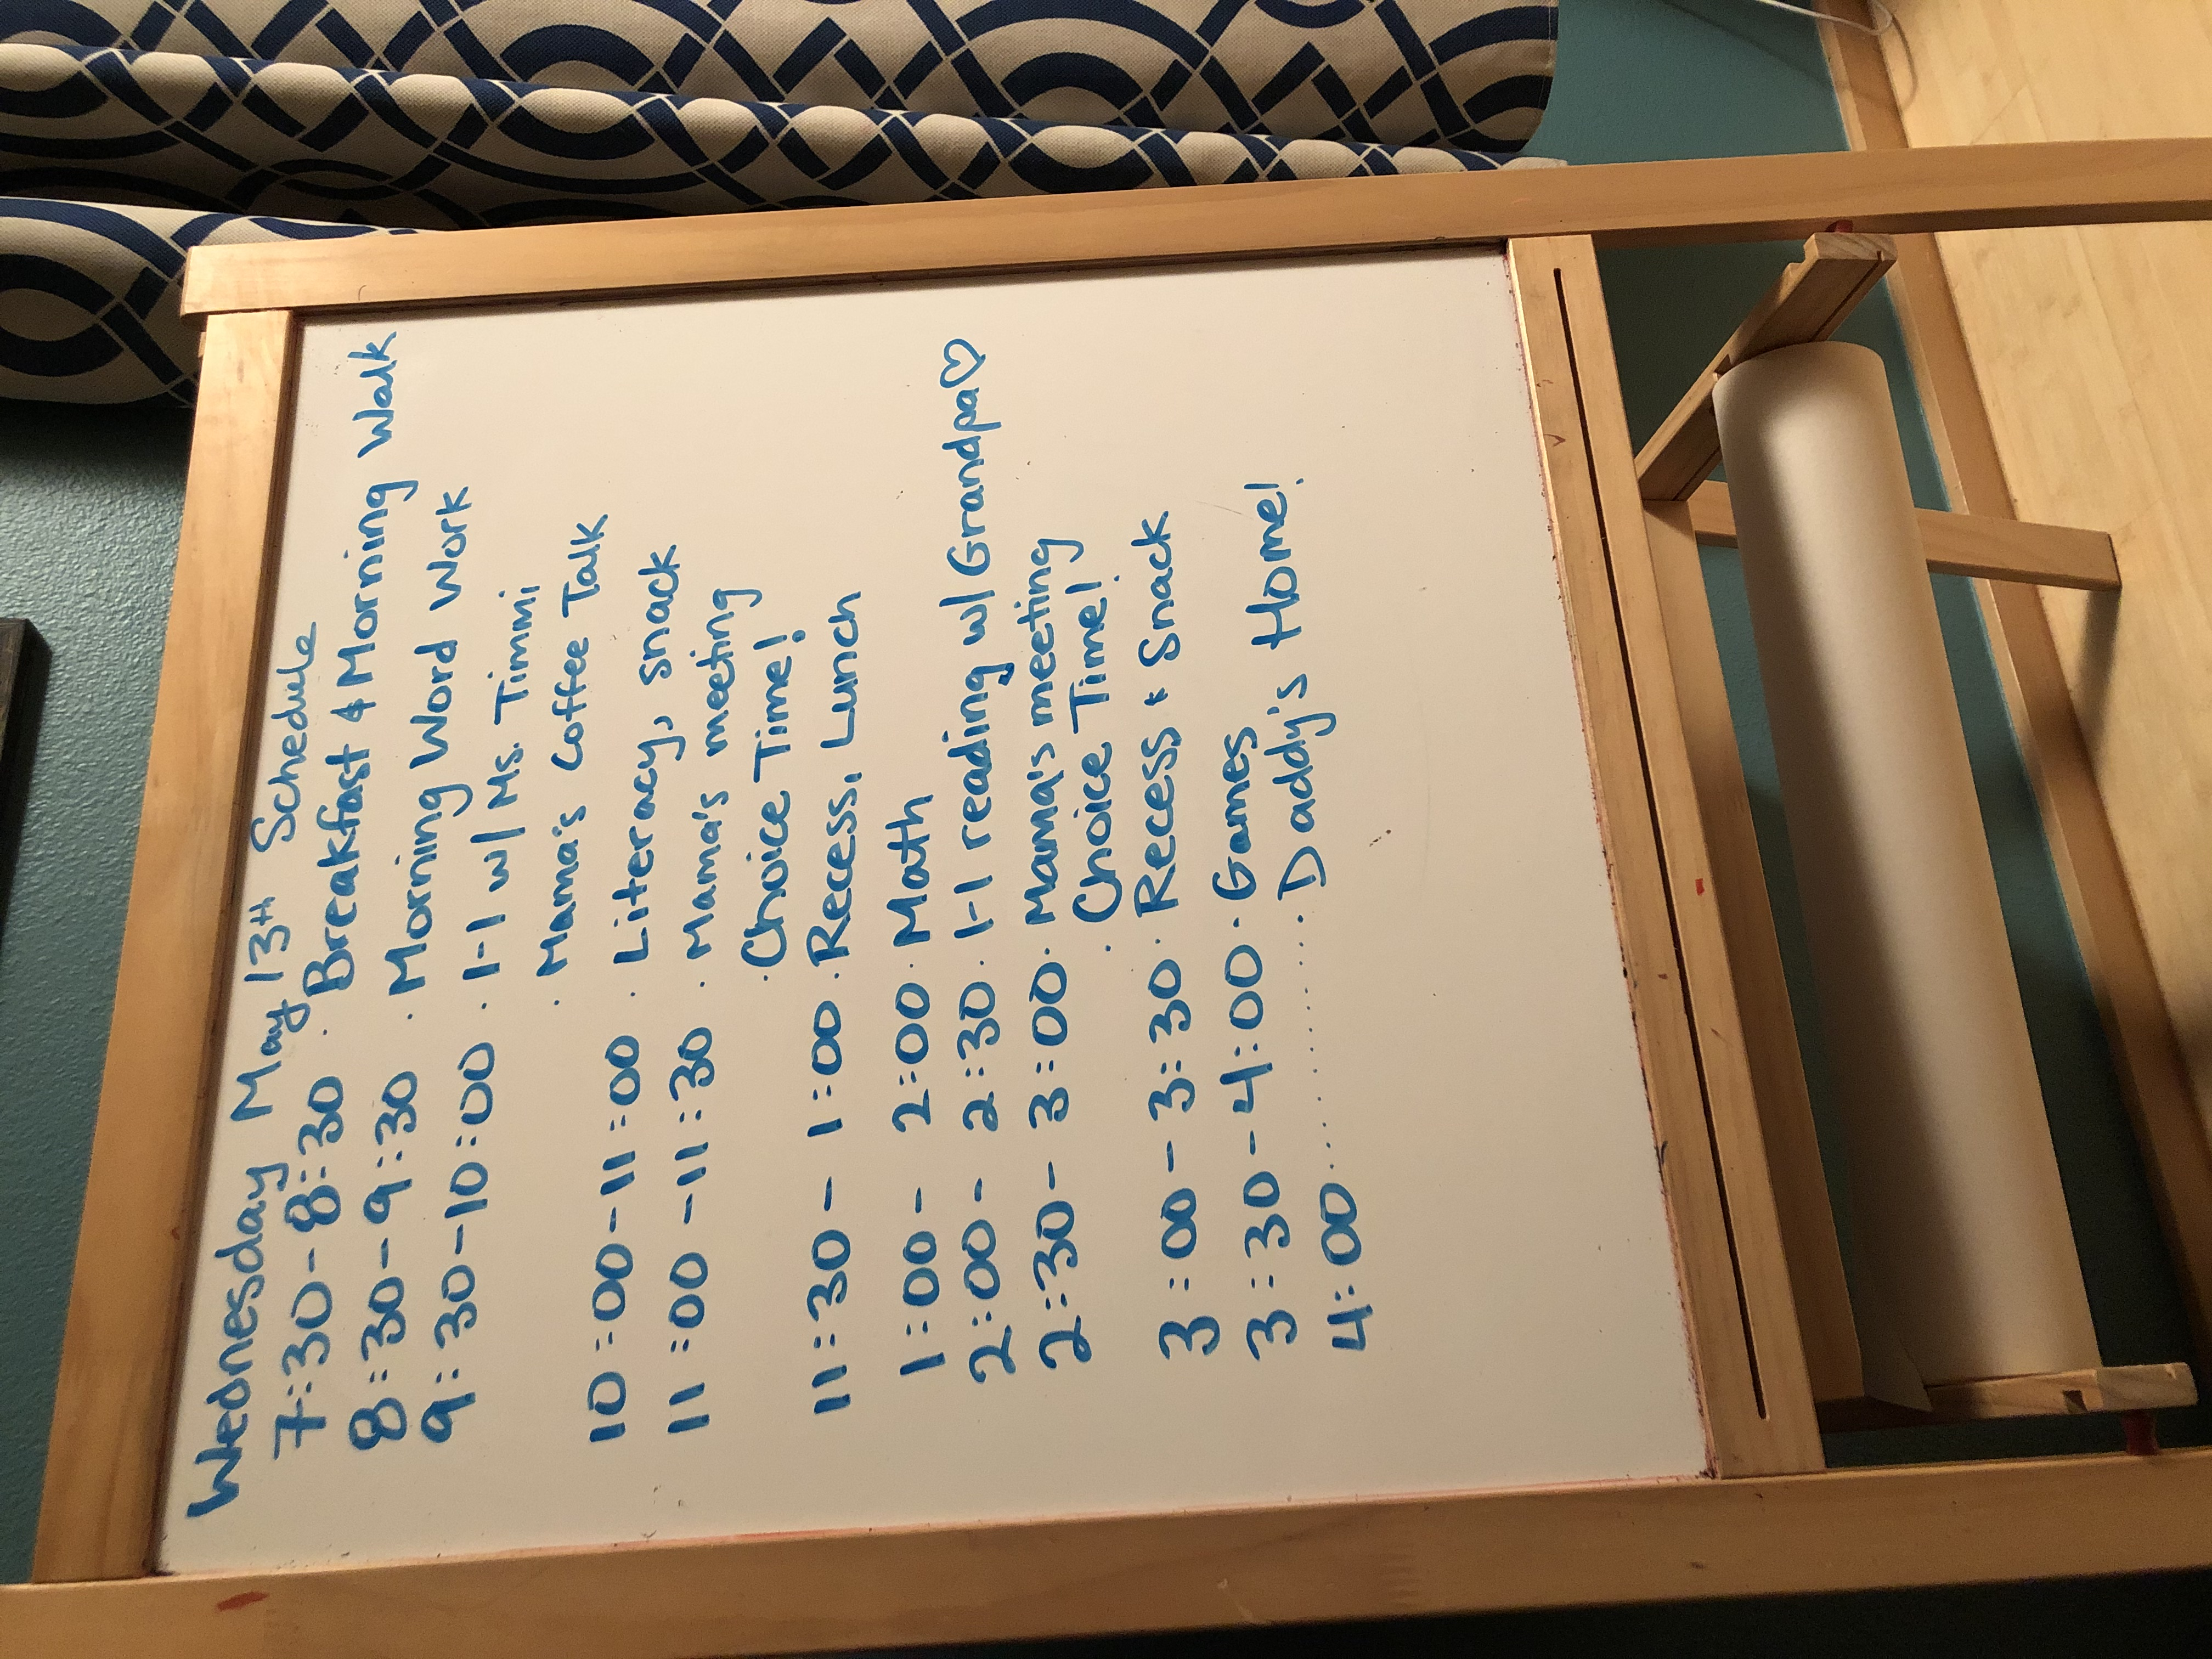 Wednesday May 13th Schedule
7:30-8:30 · Breakfast & Morning Walk
8:30-9:30 · Morning Word Work
9:30-10:00 · 1-1 w/ Ms. Timmi
· Mama's Coffee Talk
10:00-11:00 · Literacy, snack
11:00-11:30 · Mama's meeting
· Choice Time!
11:30- 1:00 · Recess, Lunch
1:00- 2:00 · Math
2:00- 2:30 · 1-1 reading w/ Grandpa♡
2:30- 3:00 · Mama's meeting
· Choice Time!
3:00-3:30 · Recess + Snack
3:30-4:00 · Games
4:00..............Daddy's Home!